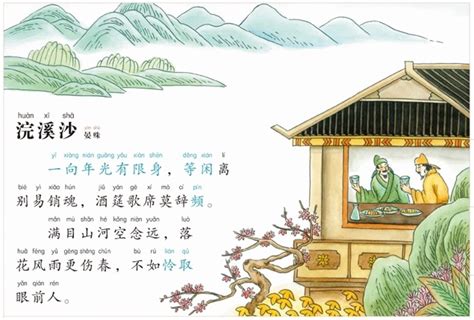 huàn xī shā
浣溪沙 晏殊
yí xiàng nián guāng yǒu xiàn shēn děng xián lí
一向年光有限身，等闲离
bié yì xiāo hún jiǔ yán gē xí mò cí pín
别易销魂，酒筵歌席莫辞频。
mǎn mù shān hé kōng niàn yuǎn luò
满目山河空念远，落
huā fēng yǔ gèng shāng chūn bù rú lián qǔ
花风雨更伤春，不如怜取
yǎn qián rén
眼前人。